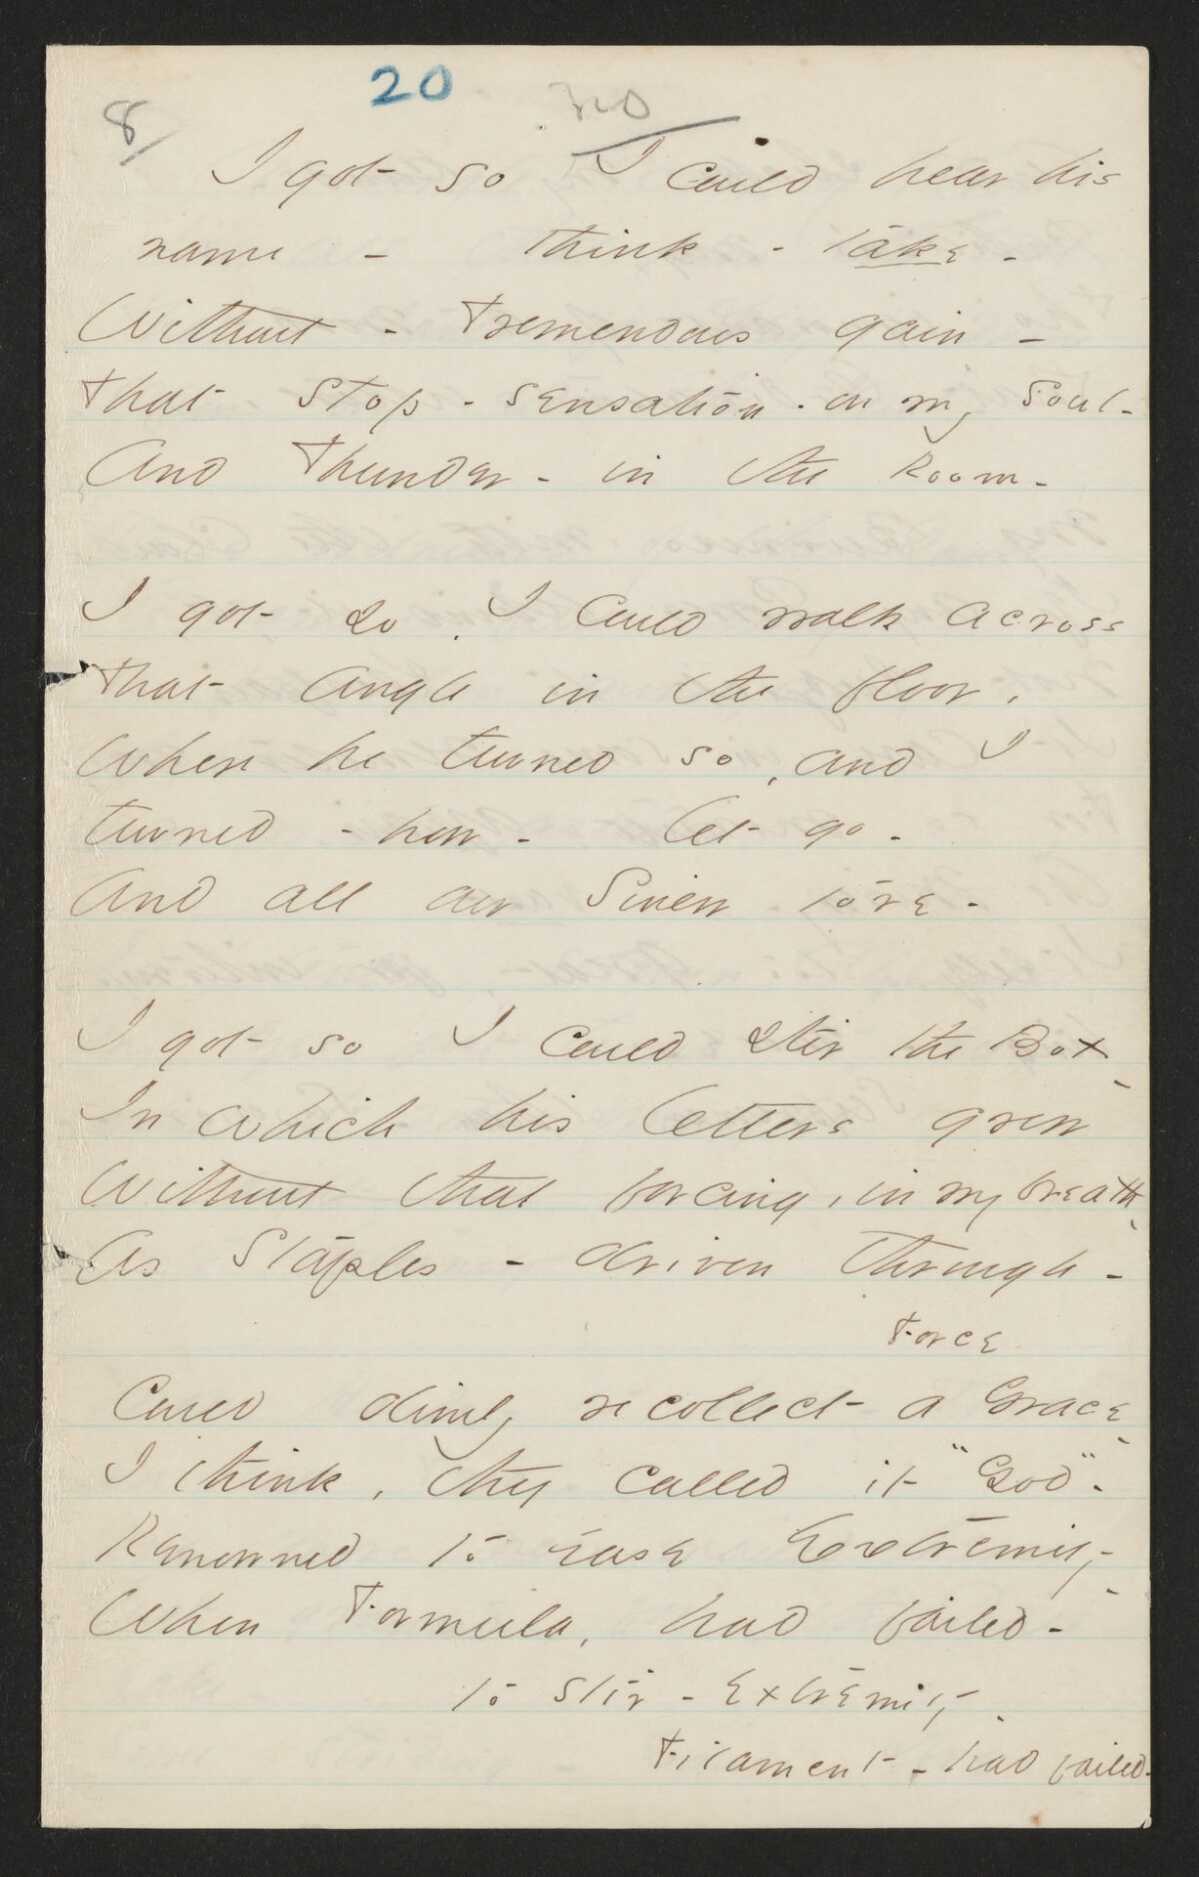 8
20
I got so I could hear his
name - Think - take -
Without - Tremendous gain -
That Stop-sensation - on my Soul -
And Thunder - in the Room -
I got so I could walk across
That Angle in the floor,
Where he turned so, and I
turned - how - Let go -
And all our Sinew tore -
I got so I could stir the Box -
In which his letters grew
Without that forcing, in my breath -
As Staples - driven through -
Force
Could dimly recollect a Grace -
I think, they called it "God" -
Renowned to ease Extremity -
When Formula, had failed -
to stir - Extremity -
Filament - had failed -